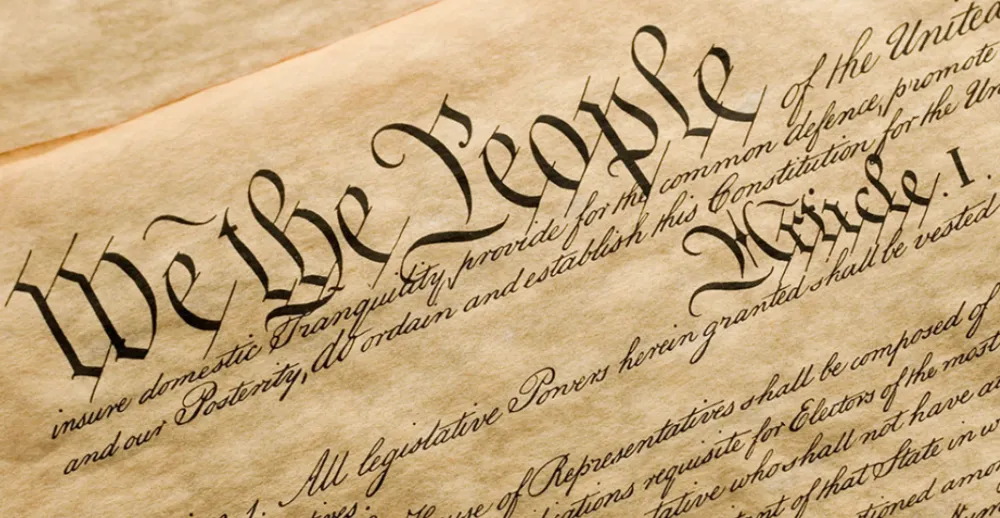 We the People of the United
insure domestic Tranquility, provide for the common defence, promote
and our Posterity, do ordain and establish this Constitution for the Un
Article. I.
All legislative Powers herein granted shall be vested
1.
use of Representatives shall be composed of
ications requisite for Electors of the most
tative who shall not have a
nt of that State in w
tioned amon